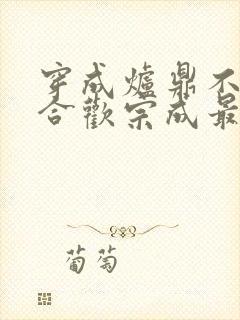 穿成爐鼎不
合歡宗成最
葡萄